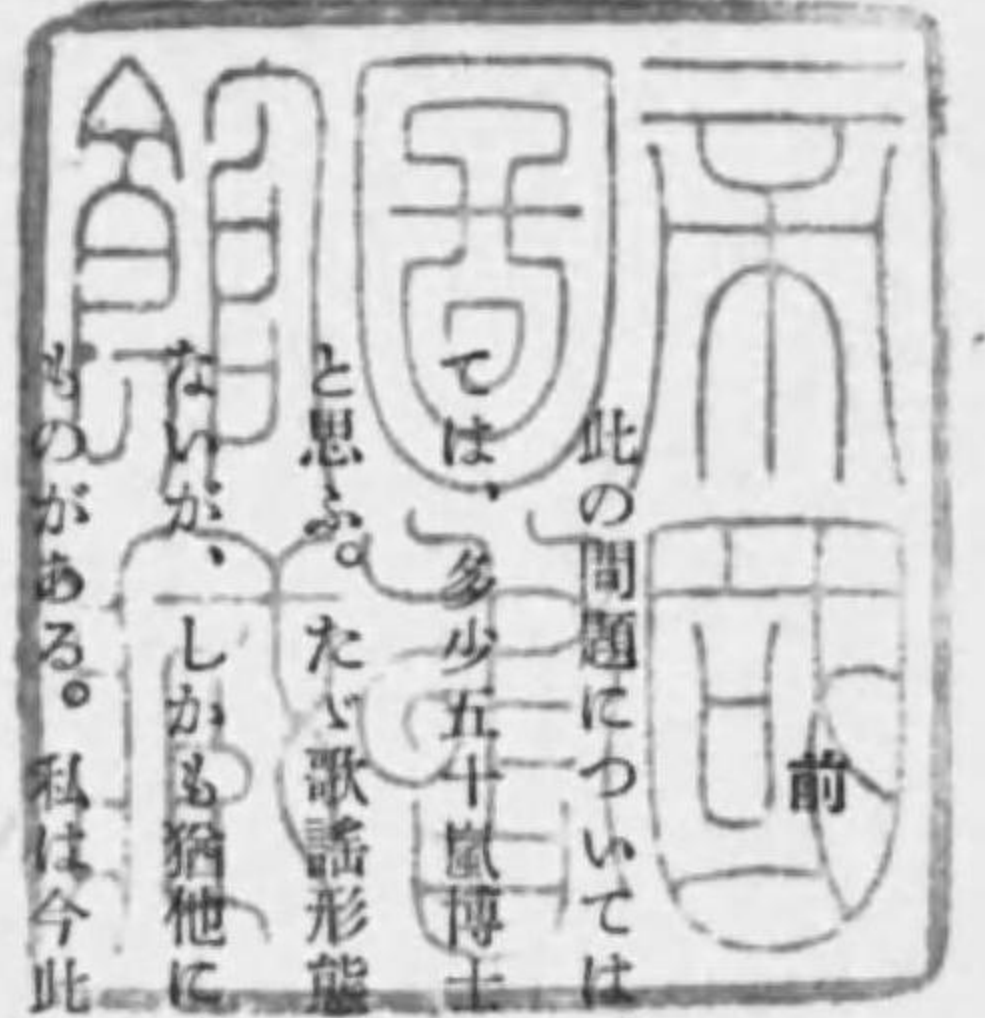 帝國
圖書
館藏
前
此の問題については
ては、多少五十嵐博士
と思ふ。たゞ歌謡形態
ないが、しかも猶他に
ものがある。私は今此